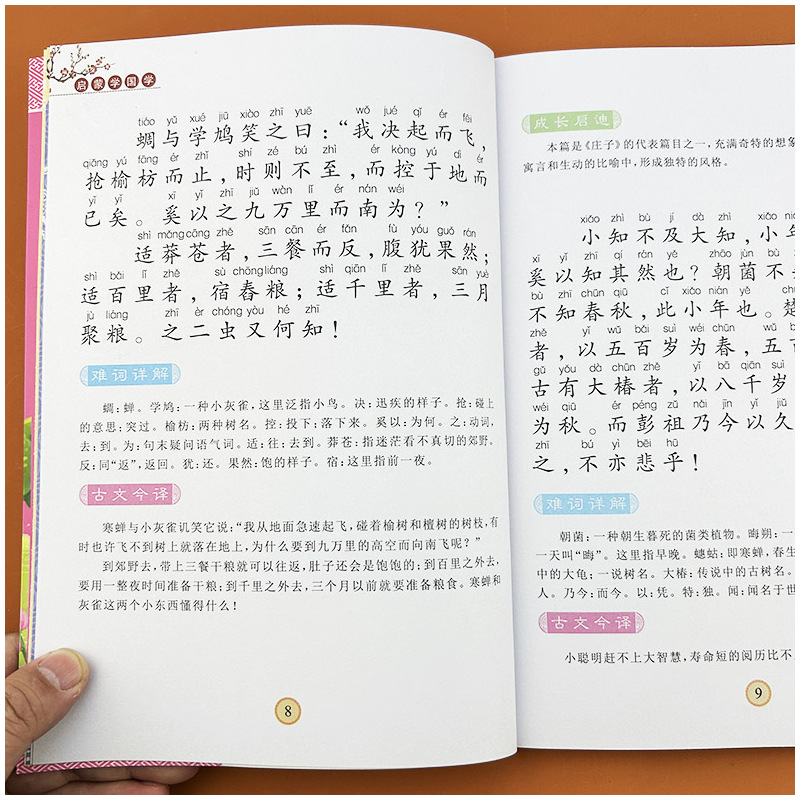 启蒙学国学
tiáo yǔ xué jiū xiào zhī yuē wǒ jué qǐ ér fēi
蜩与学鸠笑之曰：“我决起而飞，
qiāng yú fāng ér zhǐ shí zé bù zhì ér kòng yú dì ér
抢榆枋而止，时则不至，而控于地而
yǐ yǐ xī yǐ zhī jiǔ wàn lǐ ér nán wéi
已矣。奚以之九万里而南为？”
shì mǎng cāng zhě sān cān ér fǎn fù yóu guǒ rán
适莽苍者，三餐而反，腹犹果然；
shì bǎi lǐ zhě sù chōng liáng shì qiān lǐ zhě sān yuè
适百里者，宿舂粮；适千里者，三月
jù liáng zhī èr chóng yòu hé zhī
聚粮。之二虫又何知！
难词详解
蜩：蝉。学鸠：一种小灰雀，这里泛指小鸟。决：迅疾的样子。抢：碰上
的意思；突过。榆枋：两种树名。控：投下；落下来。奚以：为何。之：动词，
去；到。为：句末疑问语气词。适：往；去到。莽苍：指迷茫看不真切的郊野。
反：同“返”，返回。犹：还。果然：饱的样子。宿：这里指前一夜。
古文今译
寒蝉与小灰雀讥笑它说：“我从地面急速起飞，碰着榆树和檀树的树枝，有
时也许飞不到树上就落在地上，为什么要到九万里的高空而向南飞呢？”
到郊野去，带上三餐干粮就可以往返，肚子还会是饱饱的；到百里之外去，
要用一整夜时间准备干粮；到千里之外去，三个月以前就要准备粮食。寒蝉和
灰雀这两个小东西懂得什么！
8
成长启迪
本篇是《庄子》的代表篇目之一，充满奇特的想象
寓言和生动的比喻中，形成独特的风格。
xiǎo zhì bù jí dà zhì xiǎo
小知不及大知，小年
xī yǐ zhī qí rán yě zhāo jùn bù
奚以知其然也？朝菌不
bù zhī chūn qiū cǐ xiǎo nián yě
不知春秋，此小年也。楚
zhě yǐ wǔ bǎi suì wéi chūn wǔ
者，以五百岁为春，五百
gǔ yǒu dà chūn zhě yǐ bā qiān suì
古有大椿者，以八千岁
wéi qiū ér péng zǔ nǎi jīn yǐ jiǔ
为秋。而彭祖乃今以久
zhī bù yì bēi hū
之，不亦悲乎！
难词详解
朝菌：一种朝生暮死的菌类植物。晦朔：一
一天叫“晦”。这里指早晚。蟪蛄：即寒蝉，春生
中的大龟；一说树名。大椿：传说中的古树名。
人。乃今：而今。以：凭。特：独。闻：闻名于世
古文今译
小聪明赶不上大智慧，寿命短的阅历比不
9